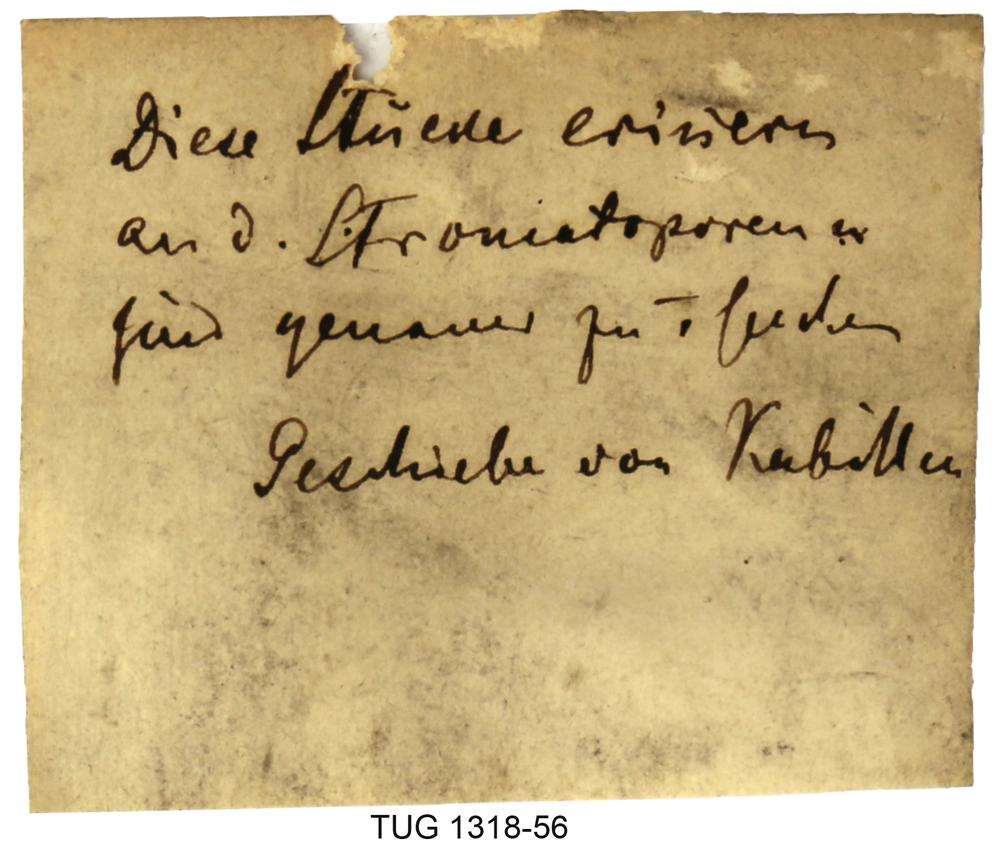 Diese Stücke erinnern
an d. Stromatoporen u
sind genauer zu
Geschiebe von Kabillen
TUG 1318-56